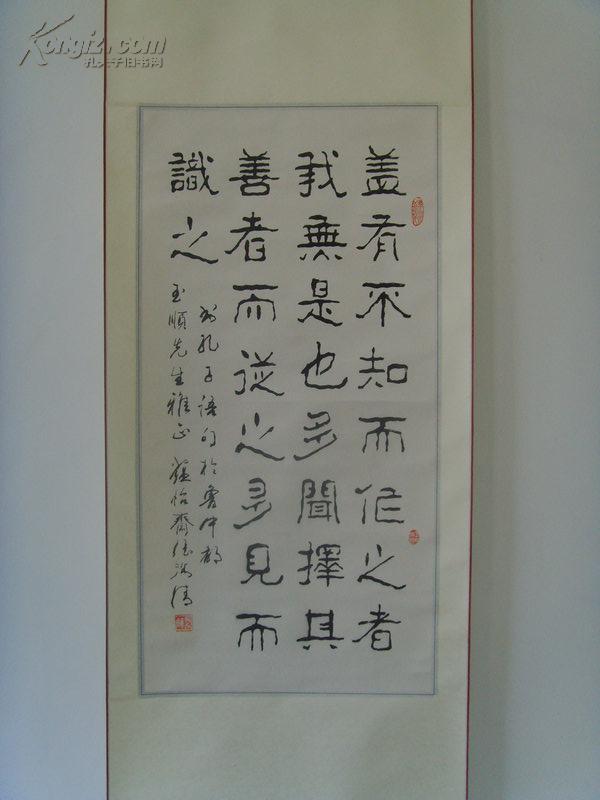 盖有不知而作之者
我無是也多聞擇其
善者而從之多見而
識之
孔子語句於魯中
玉順先生雅正
Kongfz.com
孔夫子旧书网